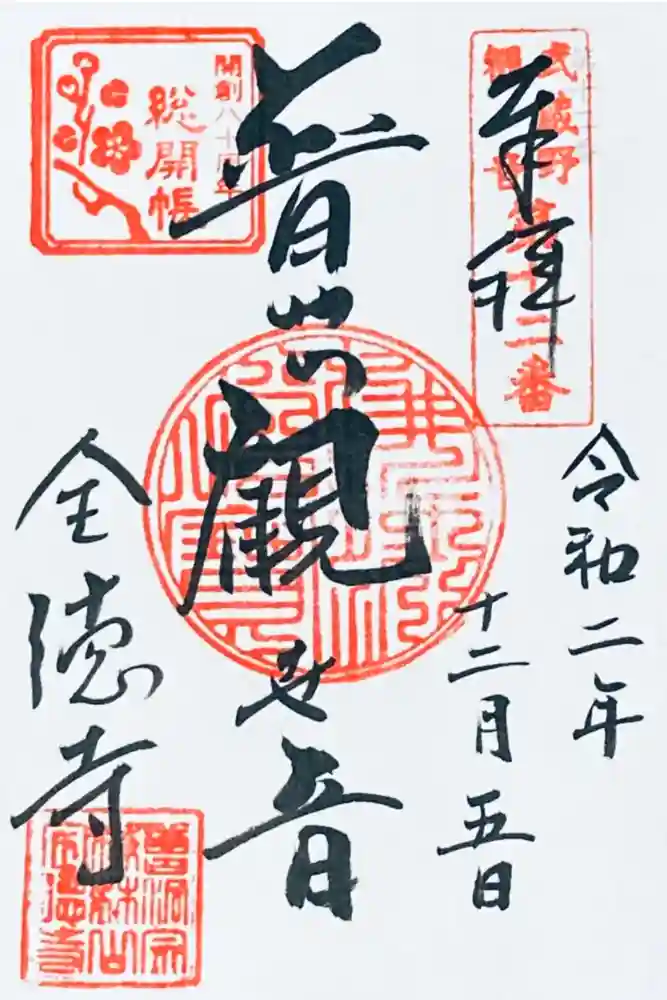 武蔵野
観音第十二番
奉拝
令和二年
十二月五日
開創八十周年
総開帳
普観世音
全徳寺
曹洞宗
梅林山
全徳寺